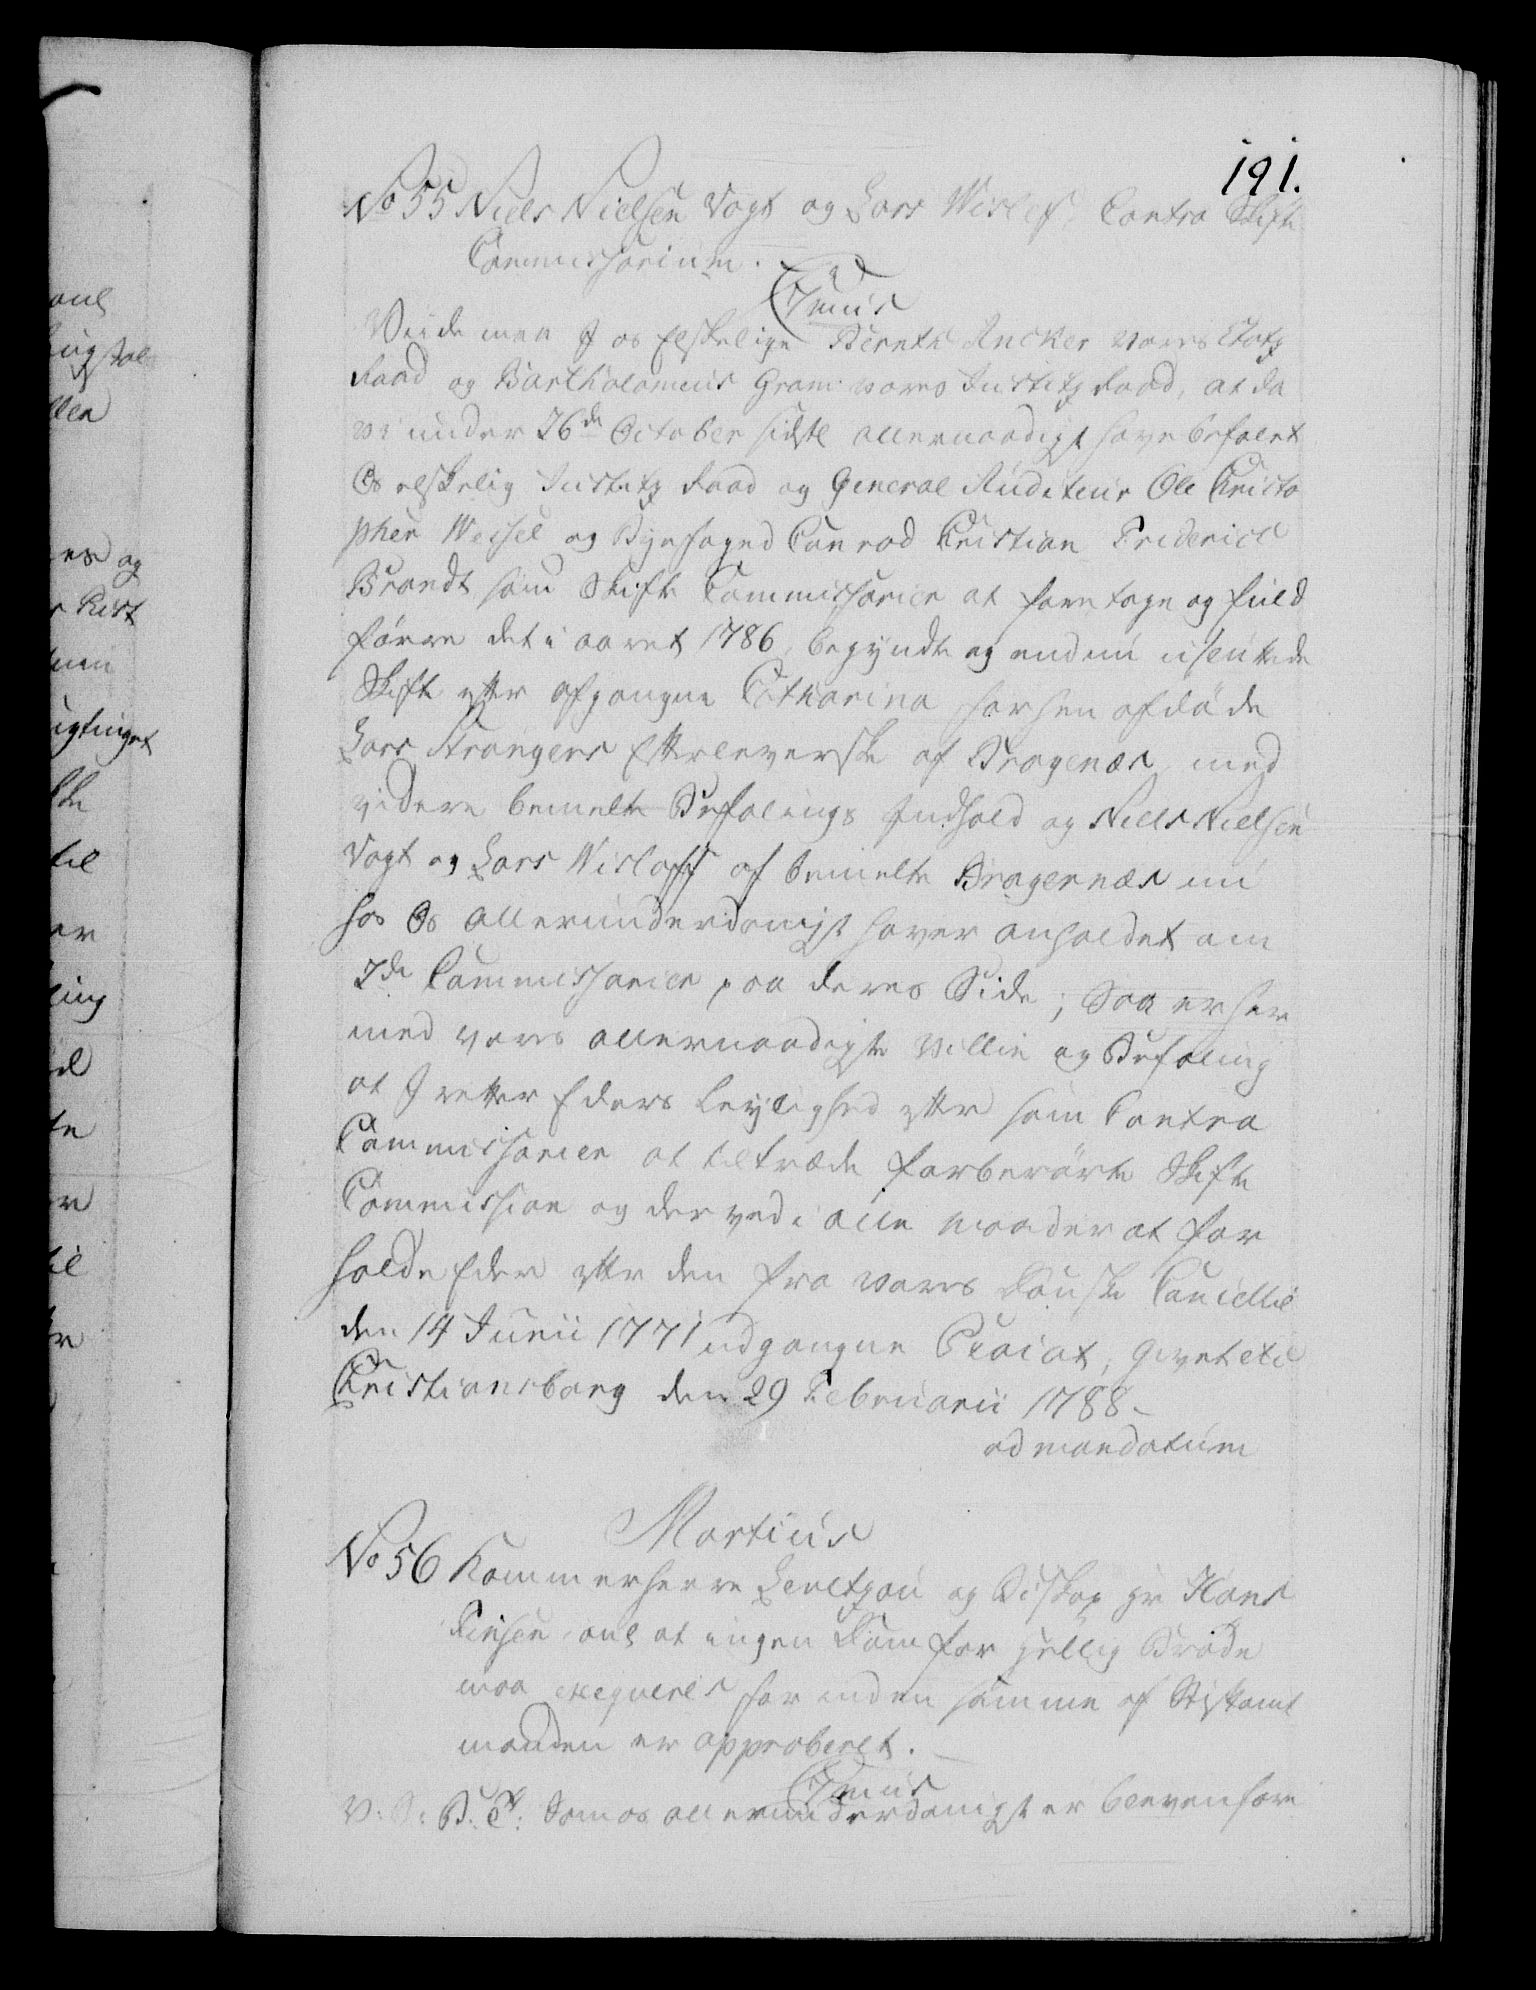 191.
No 55 Niels Nielsen Vogt og Lars Wisløf, Contra Skifte
Commissarium.
C7mus
Viide maa I os elskelige Bernth Ancker vores Etatz
Raad og Bartholomeus Gram vores Justitz Raad, at da
vi under 26de October sidste allernaadigst have befalet
Os elskelig Justitz Raad og General Auditeur Ole Christo
pher Wessel og Byefoged Conrad Christian Friderich
Brandt som Skifte Commissarier at foretage og fuld
føre det i aaret 1786, begyndte og endnu usluttede
Skifte efter afgangne Catharina sal. afdøde
Lars Arangers Efterleverske af Bragenæs, med
videre bemelte Befalings Indhold og Niels Nielsen
Vogt og Lars Wisloff af bemelte Bragernæs nu
hos Os allerunderdanigst haver anholdet om
2de Commissarier paa deres Side; Saa er her
med vores allernaadigste Villie og Befaling
at I retter Eders Leylighed efter som Contra
Commissarier at tiltræde forberørte Skifte
Commission og derved i alle maader at for
holde Eder efter den fra vores Danske Cancellie
den 14 Junii 1771 udgangne Placat, Givet etc
Christiansborg den 29 Februarii 1788.
ad mandatum
Martius
No 56 Kammerherre Levetzau og Biskop hr Hans
Finsen anl at ingen Dom for hellig Brøde
maa exequeres før inden samme af Stiftamt
manden er approberet.
C7mus
V: S: B. T: Som os allerunderdanigst er bleven fore